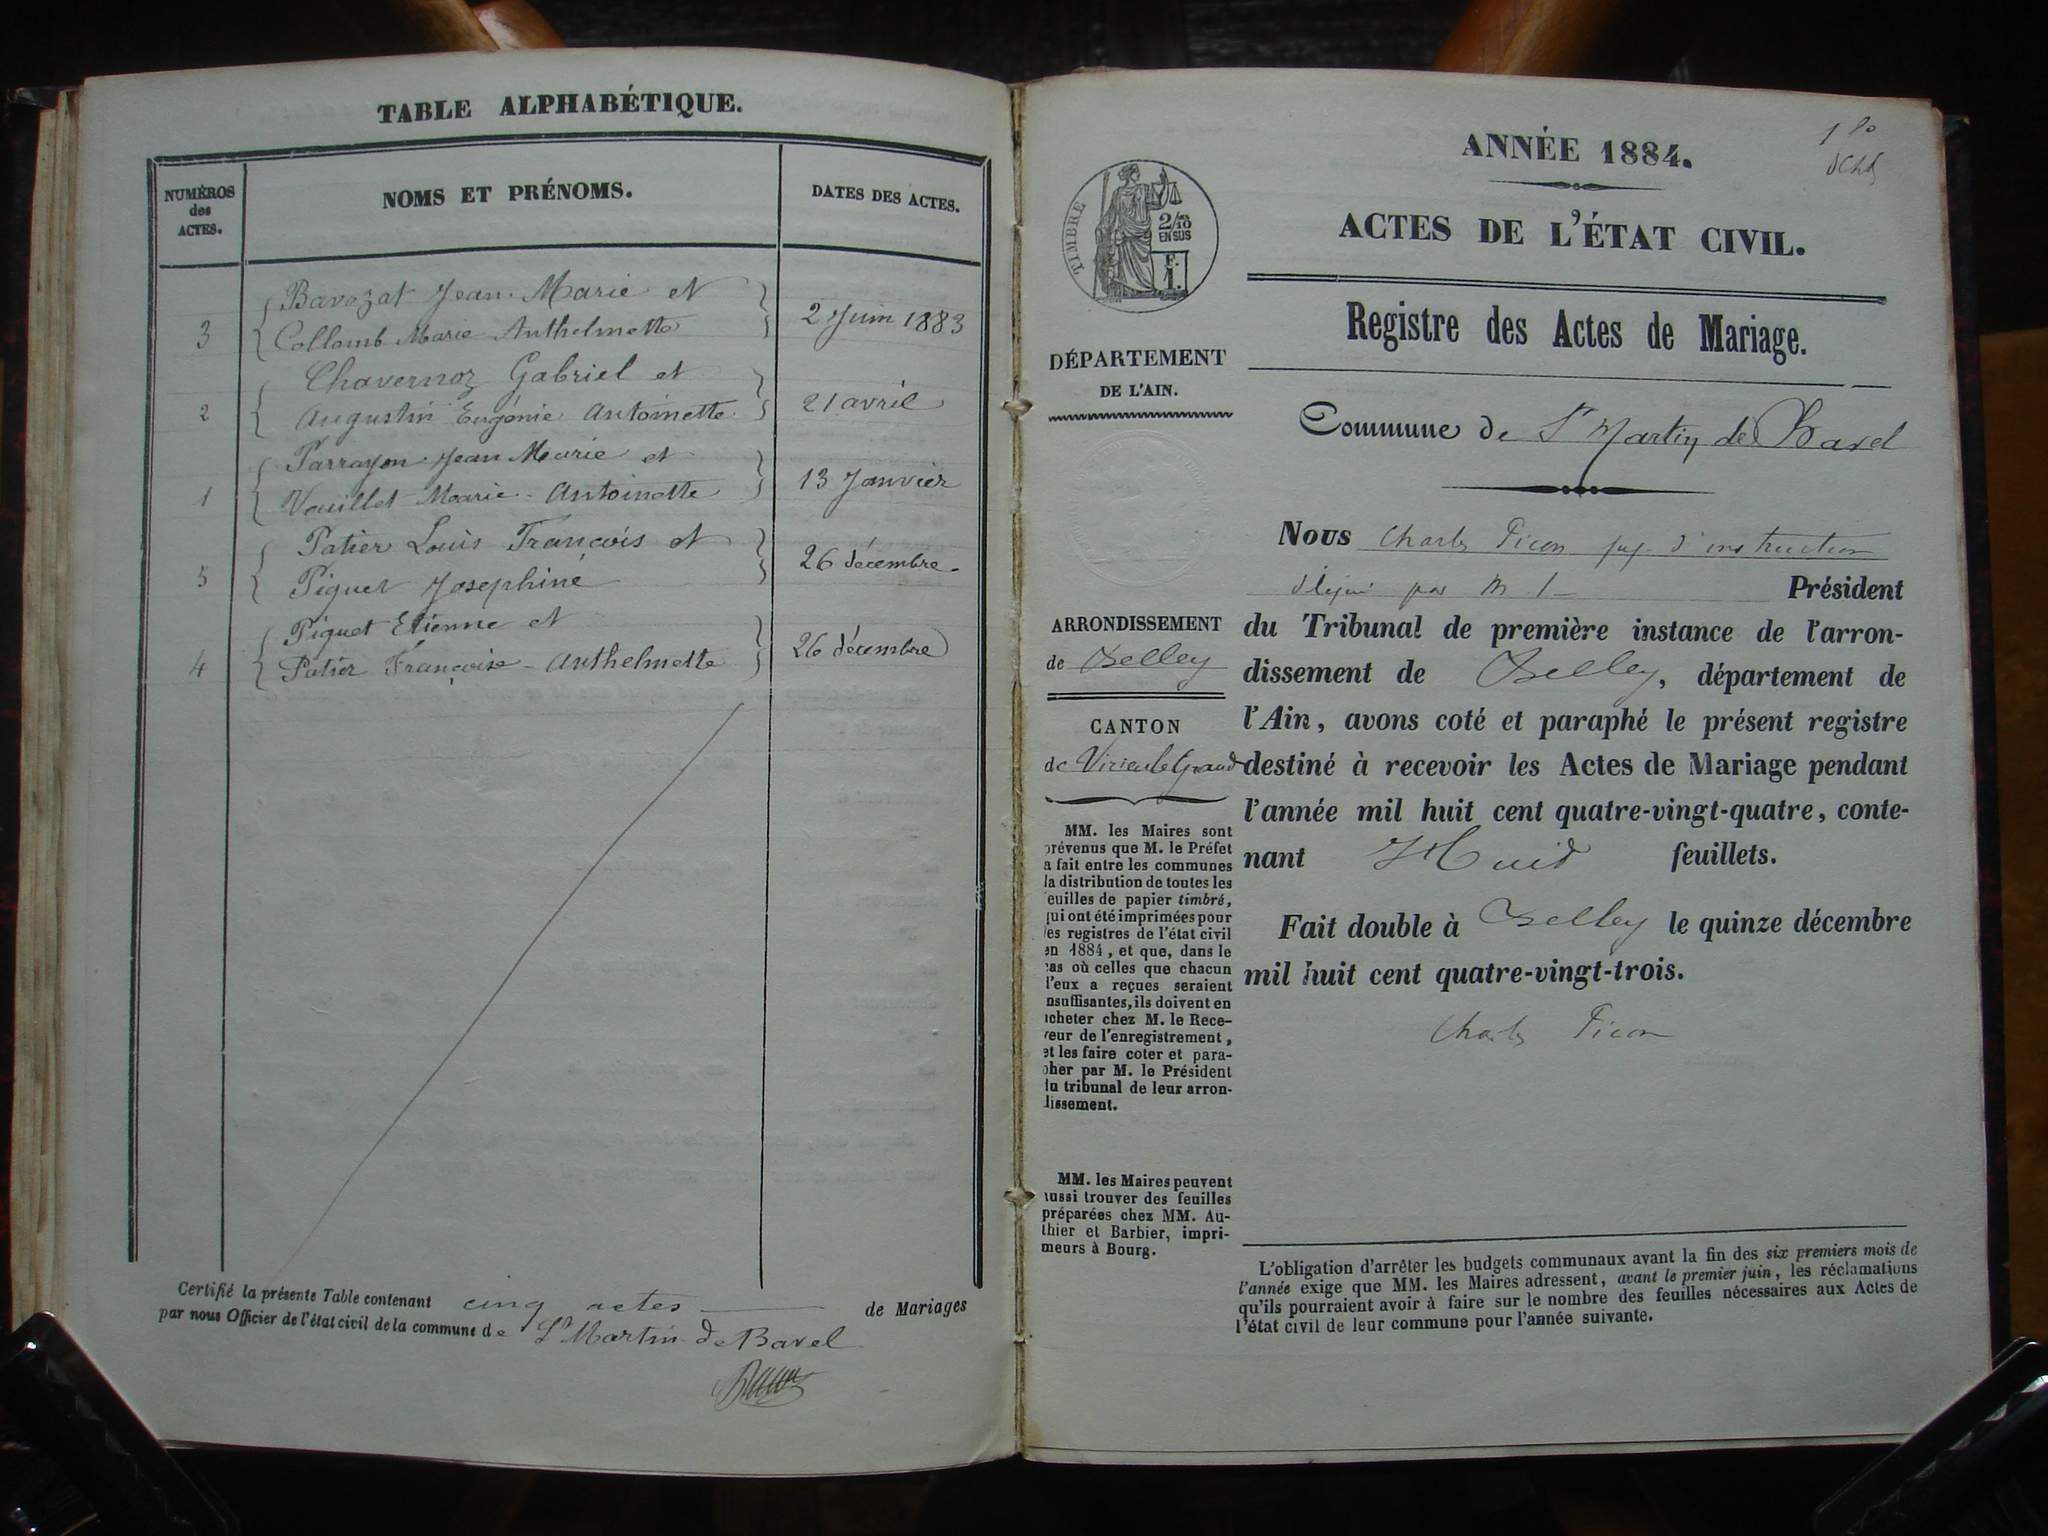 TABLE ALPHABÉTIQUE.
NUMÉROS des ACTES.
NOMS ET PRÉNOMS.
DATES DES ACTES.
3 Bavozat Jean-Marie et
Collomb Marie-Anthelmette
2 Juin 1883
2 Chavernoz Gabriel et
Augustin Eugénie Antoinette
21 avril
1 Parrayon Jean Marie et
Vuillet Marie-Antoinette
13 Janvier
5 Patier Louis François et
Piquet Josephine
26 décembre
4 Piquet Etienne et
Patier Françoise-Anthelmette
26 décembre
Certifié la présente Table contenant cinq actes de Mariages
par nous Officier de l'état civil de la commune de St Martin de Bavel
ANNÉE 1884.
ACTES DE L'ÉTAT CIVIL.
TIMBRE
2/10
EN SUS
F.
1.
Registre des Actes de Mariage.
DÉPARTEMENT
DE L'AIN.
Commune de St Martin de Bavel
ARRONDISSEMENT
de Belley
CANTON
de Virieu le Grand
MM. les Maires sont
prévenus que M. le Préfet
a fait entre les communes
la distribution de toutes les
feuilles de papier timbré,
qui ont été imprimées pour
les registres de l'état civil
en 1884, et que, dans le
cas où celles que chacun
d'eux a reçues seraient
insuffisantes, ils doivent en
acheter chez M. le Rece-
veur de l'enregistrement,
et les faire coter et para-
pher par M. le Président
du tribunal de leur arron-
dissement.
MM. les Maires peuvent
aussi trouver des feuilles
préparées chez MM. Au-
thier et Barbier, impri-
meurs à Bourg.
Nous Charles Picon juge d'instruction
délégué par M. l Président
du Tribunal de première instance de l'arron-
dissement de Belley, département de
l'Ain, avons coté et paraphé le présent registre
destiné à recevoir les Actes de Mariage pendant
l'année mil huit cent quatre-vingt-quatre, conte-
nant Huit feuillets.
Fait double à Belley le quinze décembre
mil huit cent quatre-vingt-trois.
Charles Picon
L'obligation d'arrêter les budgets communaux avant la fin des six premiers mois de
l'année exige que MM. les Maires adressent, avant le premier juin, les réclamations
qu'ils pourraient avoir à faire sur le nombre des feuilles nécessaires aux Actes de
l'état civil de leur commune pour l'année suivante.